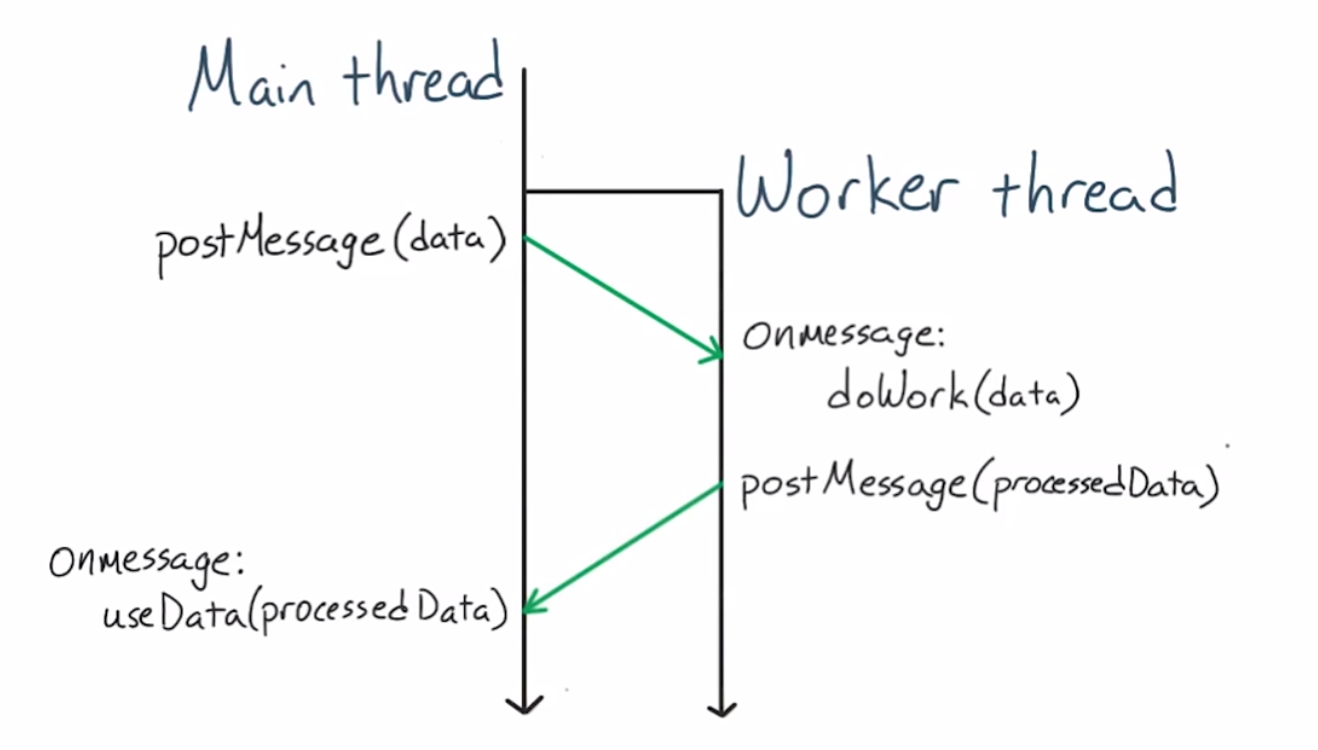 Main thread
Worker thread
postMessage(data)
Onmessage:
doWork(data)
postMessage(processedData)
Onmessage:
useData(processedData)